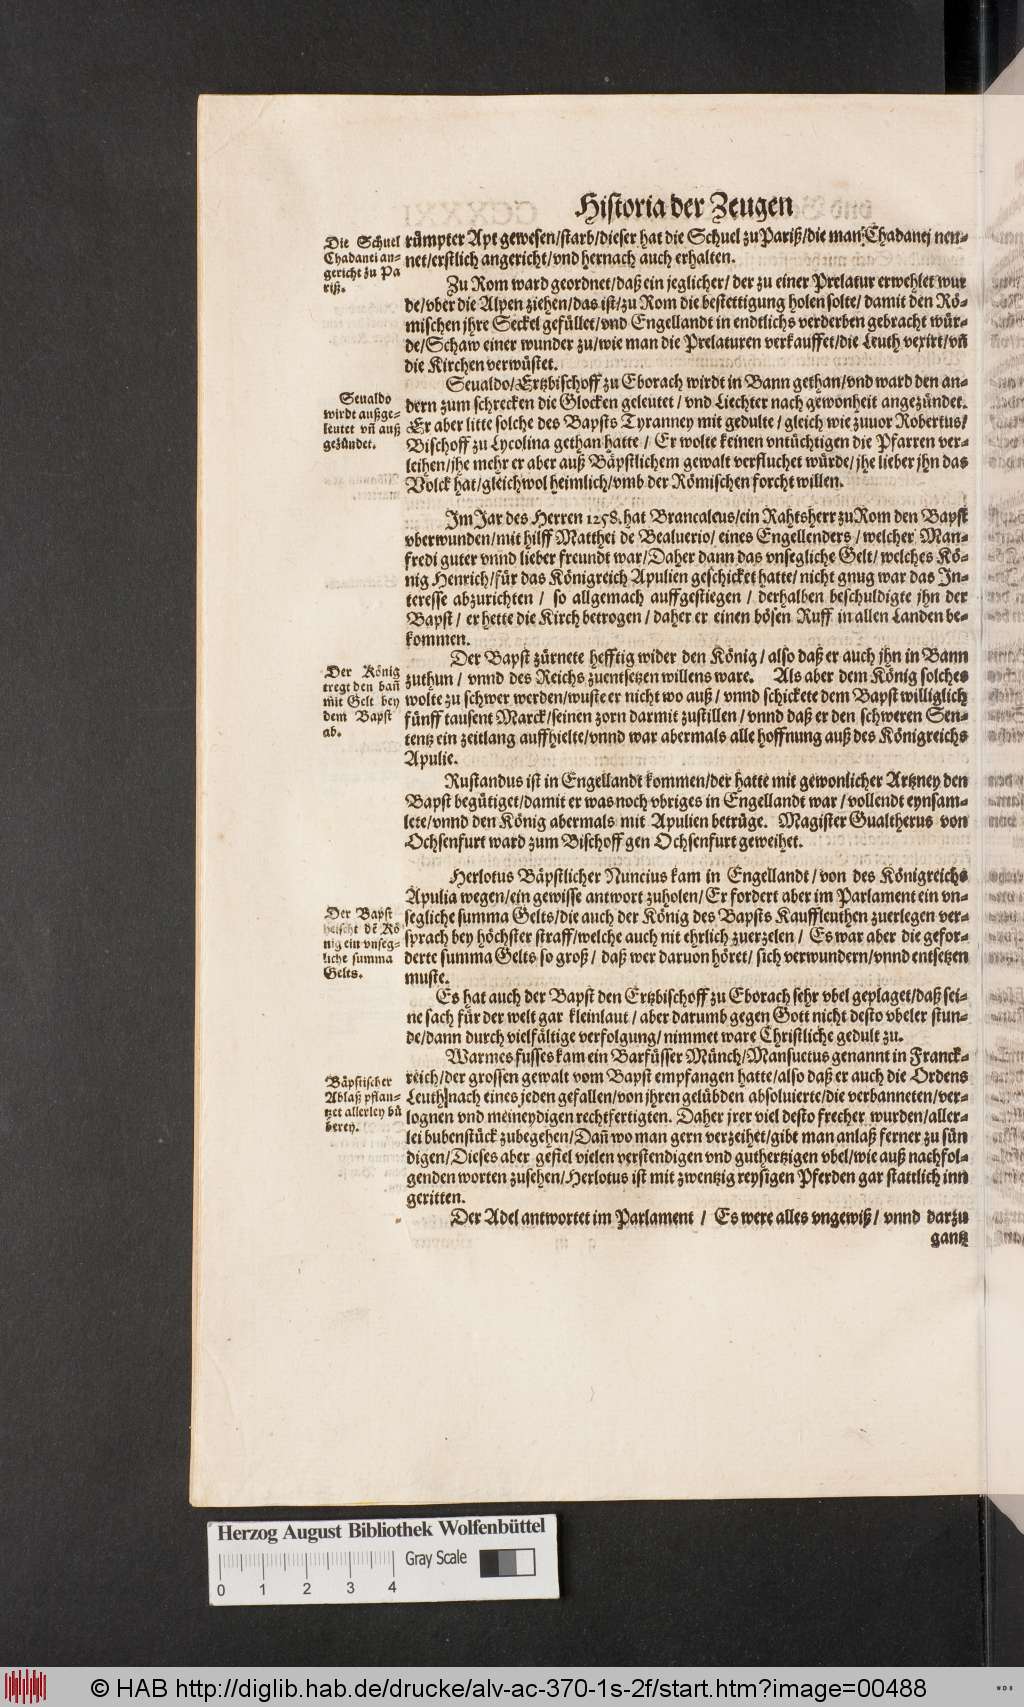 Historia der Zeugen
Die Schuel
Chadanei an-
gericht zu Pa
riß.
rümpter Apt gewesen/starb/dieser hat die Schuel zu Pariß/die man Chadanej nen-
net/erstlich angericht/vnd hernach auch erhalten.
Zu Rom ward geordnet/daß ein jeglicher/ der zu einer Prelatur erwehlet wur
de/vber die Alpen ziehen/das ist/zu Rom die bestettigung holen solte/ damit den Rö-
mischen jhre Seckel gefüllet/vnd Engellandt in endtlichs verderben gebracht wür-
de/Schaw einer wunder zu/wie man die Prelaturen verkauffet/die Leuth vexirt/vn̄
die Kirchen verwüstet.
Seualdo
wirdt außge-
leutet vn̄ auß
gezündet.
Seualdo/Ertzbischoff zu Eborach wirdt in Bann gethan/vnd ward den an-
dern zum schrecken die Glocken geleutet / vnd Liechter nach gewonheit angezündet.
Er aber litte solche des Bapsts Tyranney mit gedulte / gleich wie zuuor Robertus/
Bischoff zu Lycolina gethan hatte / Er wolte keinen vntüchtigen die Pfarren ver-
leihen/jhe mehr er aber auß Bäpstlichem gewalt verfluchet würde/ jhe lieber jhn das
Volck hat/gleichwol heimlich/vmb der Römischen forcht willen.
Im Jar des Herren 1258. hat Brancaleus/ein Rahtsherr zu Rom den Bapst
vberwunden/mit hilff Matthei de Bealuerio/ eines Engellenders / welcher Man-
fredi guter vnnd lieber freundt war/Daher dann das vnsegliche Gelt/ welches Kö-
nig Henrich/für das Königreich Apulien geschicket hatte/ nicht gnug war das In-
teresse abzurichten / so allgemach auffgestiegen / derhalben beschuldigte jhn der
Bapst / er hette die Kirch betrogen / daher er einen bösen Ruff in allen Landen be-
kommen.
Der König
tregt den ban̄
mit Gelt bey
dem Bapst
ab.
Der Bapst zürnete hefftig wider den König / also daß er auch jhn in Bann
zuthun / vnnd des Reichs zuentsetzen willens ware. Als aber dem König solches
wolte zu schwer werden/wuste er nicht wo auß / vnnd schickete dem Bapst williglich
fünff tausent Marck/seinen zorn darmit zustillen / vnnd daß er den schweren Sen-
tentz ein zeitlang auffhielte/vnnd war abermals alle hoffnung auß des Königreichs
Apulie.
Rustandus ist in Engellandt kommen/der hatte mit gewonlicher Artzney den
Bapst begütiget/damit er was noch vbriges in Engellandt war / vollendt eynsam-
lete/vnnd den König abermals mit Apulien betrüge. Magister Gualtherus von
Ochsenfurt ward zum Bischoff gen Ochsenfurt geweihet.
Der Bapst
heischt dē Kö
nig ein vnseg-
liche summa
Gelts.
Herlotus Bäpstlicher Nuncius kam in Engellandt / von des Königreichs
Apulia wegen/ein gewisse antwort zuholen/Er fordert aber im Parlament ein vn-
segliche summa Gelts/die auch der König des Bapsts Kauffleuthen zuerlegen ver-
sprach bey höchster straff/welche auch nit ehrlich zuerzelen / Es war aber die gefor-
derte summa Gelts so groß / daß wer daruon höret/ sich verwundern/vnnd entsetzen
muste.
Es hat auch der Bapst den Ertzbischoff zu Eborach sehr vbel geplaget/daß sei-
ne sach für der welt gar kleinlaut / aber darumb gegen Gott nicht desto vbeler stun-
de/dann durch vielfältige verfolgung/ nimmet ware Christliche gedult zu.
Bäpstischer
Ablaß pflan-
tzet allerley bü
berey.
Warmes fusses kam ein Barfüsser Münch/Mansuetus genannt in Franck-
reich/der grossen gewalt vom Bapst empfangen hatte/also daß er auch die Ordens
Leuth nach eines jeden gefallen/von jhren gelübden absoluierte/die verbanneten/ver-
lognen vnd meineydigen rechtfertigten. Daher jrer viel desto frecher wurden/aller-
lei bubenstück zubegehen/Dan̄ wo man gern verzeihet/gibt man anlaß ferner zu sün
digen/Dieses aber gefiel vielen verstendigen vnd guthertzigen vbel/wie auß nachfol-
genden worten zusehen/Herlotus ist mit zwentzig reysigen Pferden gar stattlich inn
geritten.
Der Adel antwortet im Parlament / Es were alles vngewiß/ vnnd darzu
gantz
Herzog August Bibliothek Wolfenbüttel
Gray Scale
0 1 2 3 4
© HAB http://diglib.hab.de/drucke/alv-ac-370-1s-2f/start.htm?image=00488